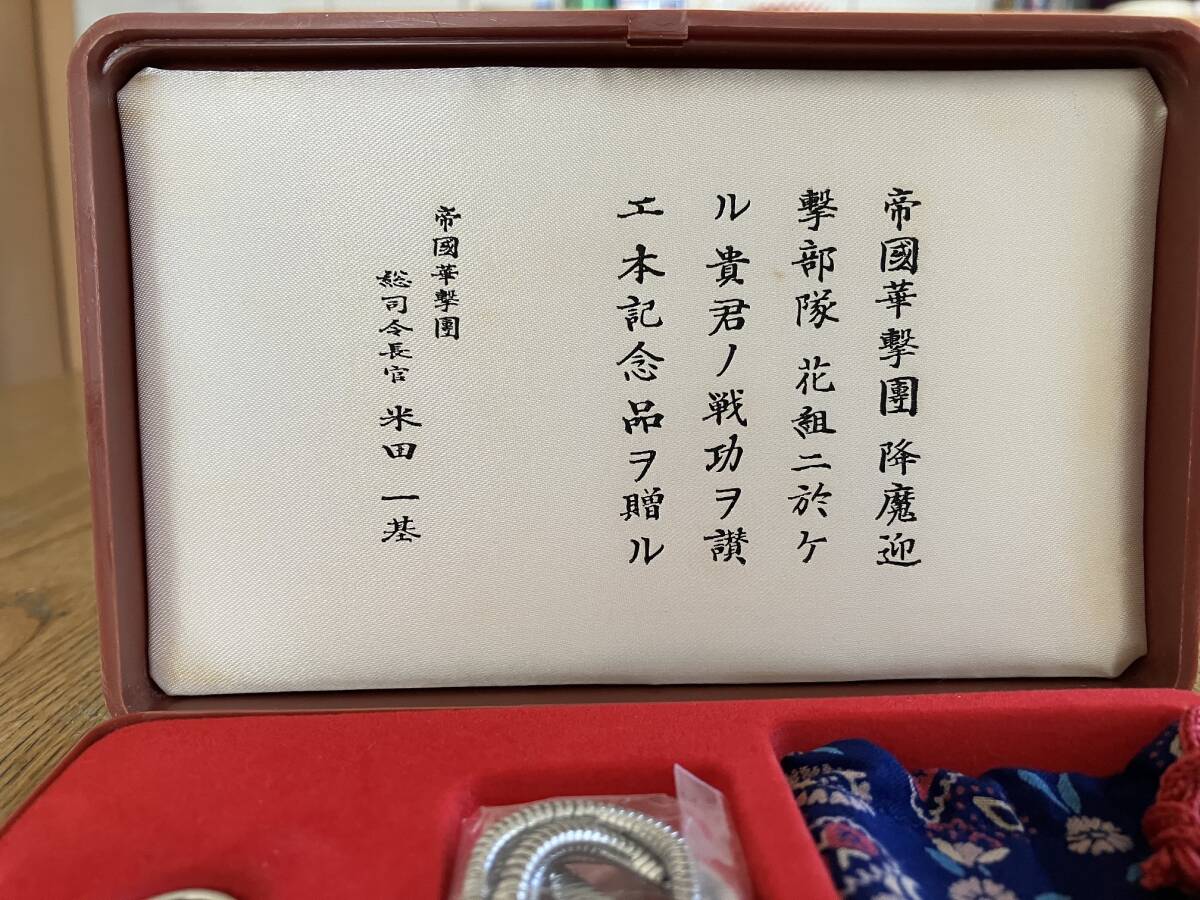 帝國華撃團 降魔迎
撃部隊 花組ニ於ケ
ル貴君ノ戦功ヲ讃
エ本記念品ヲ贈ル
帝國華撃團
総司令長官 米田一基